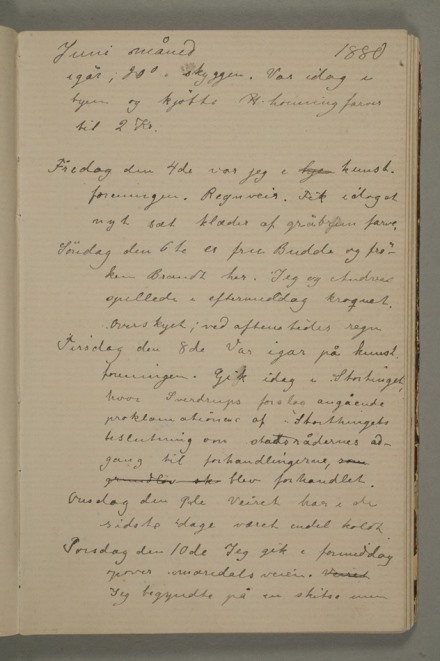 Juni måned 1880
igår; 20° i skyggen. Var idag i
byen og kjøbte farver
til 2 Kr.
Fredag den 4de var jeg i byen kunst-
foreningen. Regnveir. Fik idag et
nyt sæt klæder af gråbrun farve.
Söndag den 6te er fru Budde og frö-
ken Brandt her. Jeg og Andreas
spillede i eftermiddag kroquet.
Overskyet; ved aftenstider regn
Tirsdag den 8de Var igår på kunst
foreningen. Gik idag i Storthinget,
hvor Sverdrups forslag angående
proklamationen af Storthingets
beslutning om statsrådernes ad-
gang til forhandlingerne, som
grundlov blev forhandlet.
Onsdag den 9de Veiret har i de
sidste 4 dage været endel koldt
Torsdag den 10de Jeg gik i formiddag
opover maridalsveien. Veiret
Jeg begyndte på en skitse men